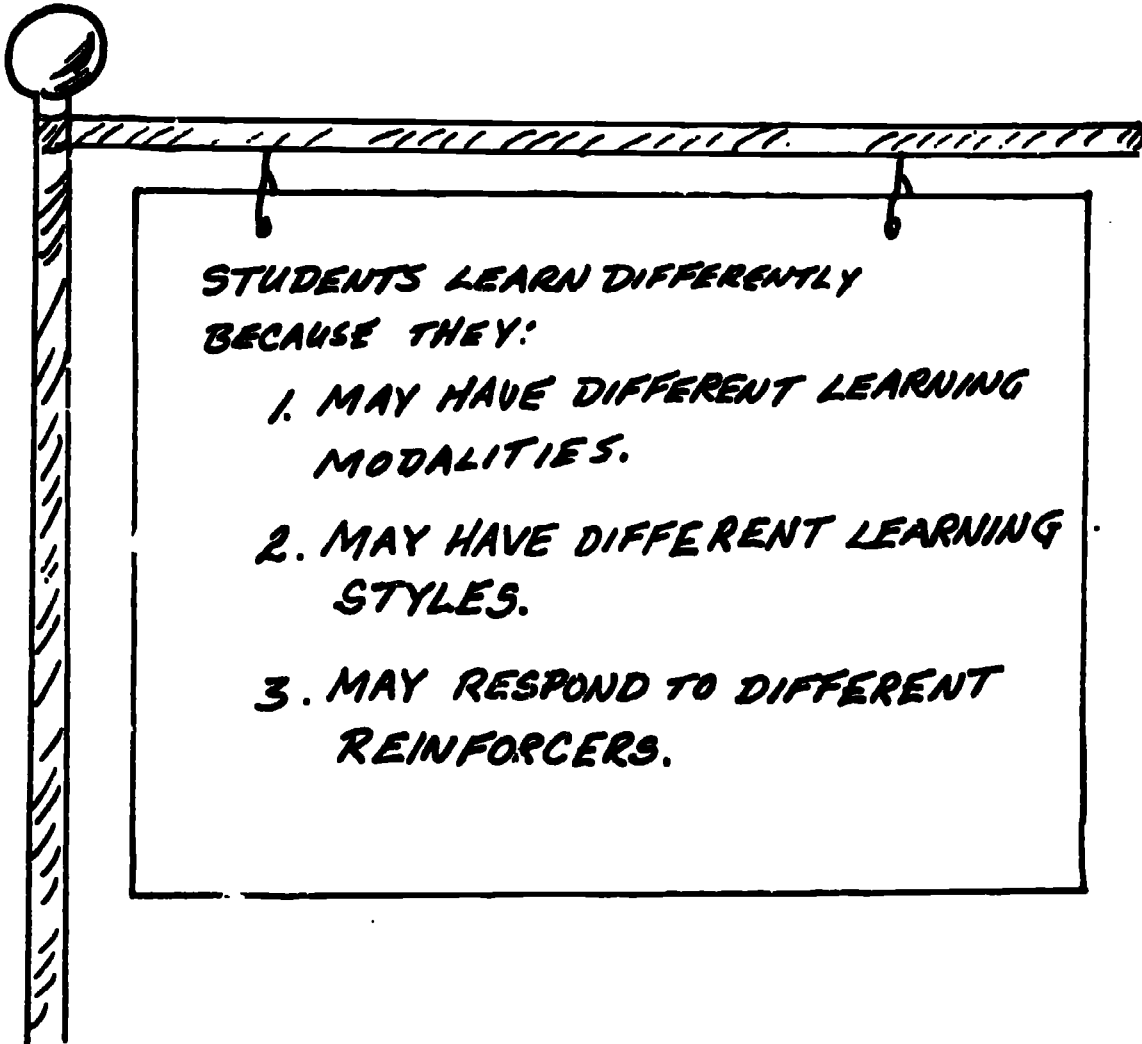 STUDENTS LEARN DIFFERENTLY
BECAUSE THEY:
1. MAY HAVE DIFFERENT LEARNING
MODALITIES.
2. MAY HAVE DIFFERENT LEARNING
STYLES.
3. MAY RESPOND TO DIFFERENT
REINFORCERS.